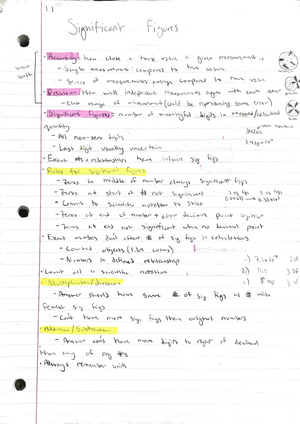 1.1
Significant Figures
- Accuracy: how close a true value a given measurement is
- Single measurement compared to true value
- Series of measurements: average compared to true value
- Precision: How well independent measurements agree with each other
- Close range of measurement (could be reproducing same error)
- Significant figures: number of meaningful digits in measured/calculated
quantity
- All non-zero digits
- Last digit usually uncertain
- Exact #s + relationships have infinite sig figs
- Rules for significant figures
- Zeros in middle of number always significant figs
- Zeros at start of # not significant
- Convert to scientific notation to show
- Zeros at end of number + after decimal point significant
- Zeros at end not significant when no decimal point
- Exact numbers don't affect # of sig figs in calculations
- Counted objects (i.e. coins)
- Numbers in defined relationship
- Count all in scientific notation
- Multiplication/division
- Answer should have same # of sig figs as # w/
fewest sig figs
- Can't have more sig figs than original numbers
- Addition/Subtraction
- Answer can't have more digits to right of decimal
than any of org #s
- Always remember units